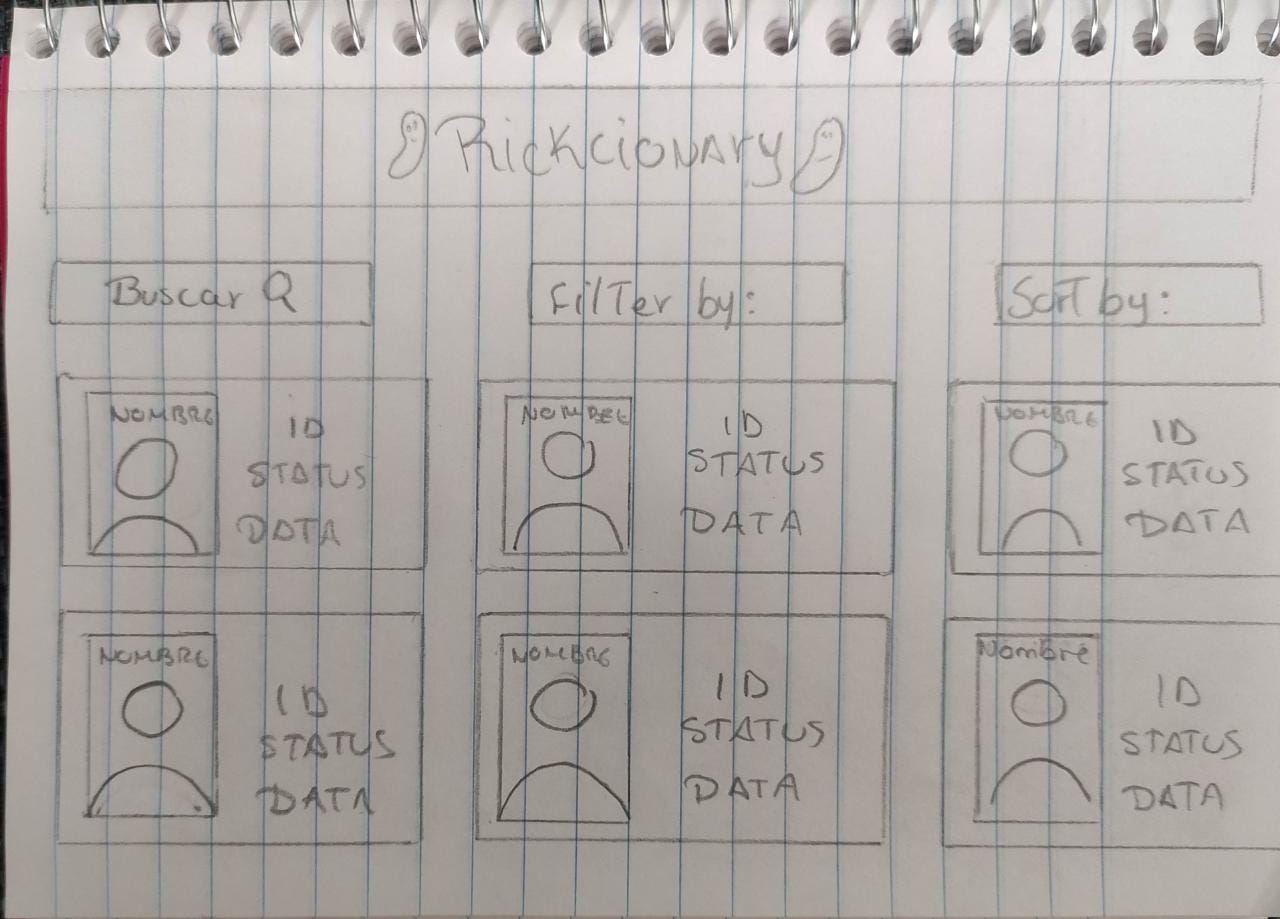 Rickcionary
Buscar
Filter by:
Sort by:
NOMBRE
ID
STATUS
DATA
NOMBRE
ID
STATUS
DATA
NOMBRE
ID
STATUS
DATA
NOMBRE
ID
STATUS
DATA
NOMBRE
ID
STATUS
DATA
Nombre
ID
STATUS
DATA